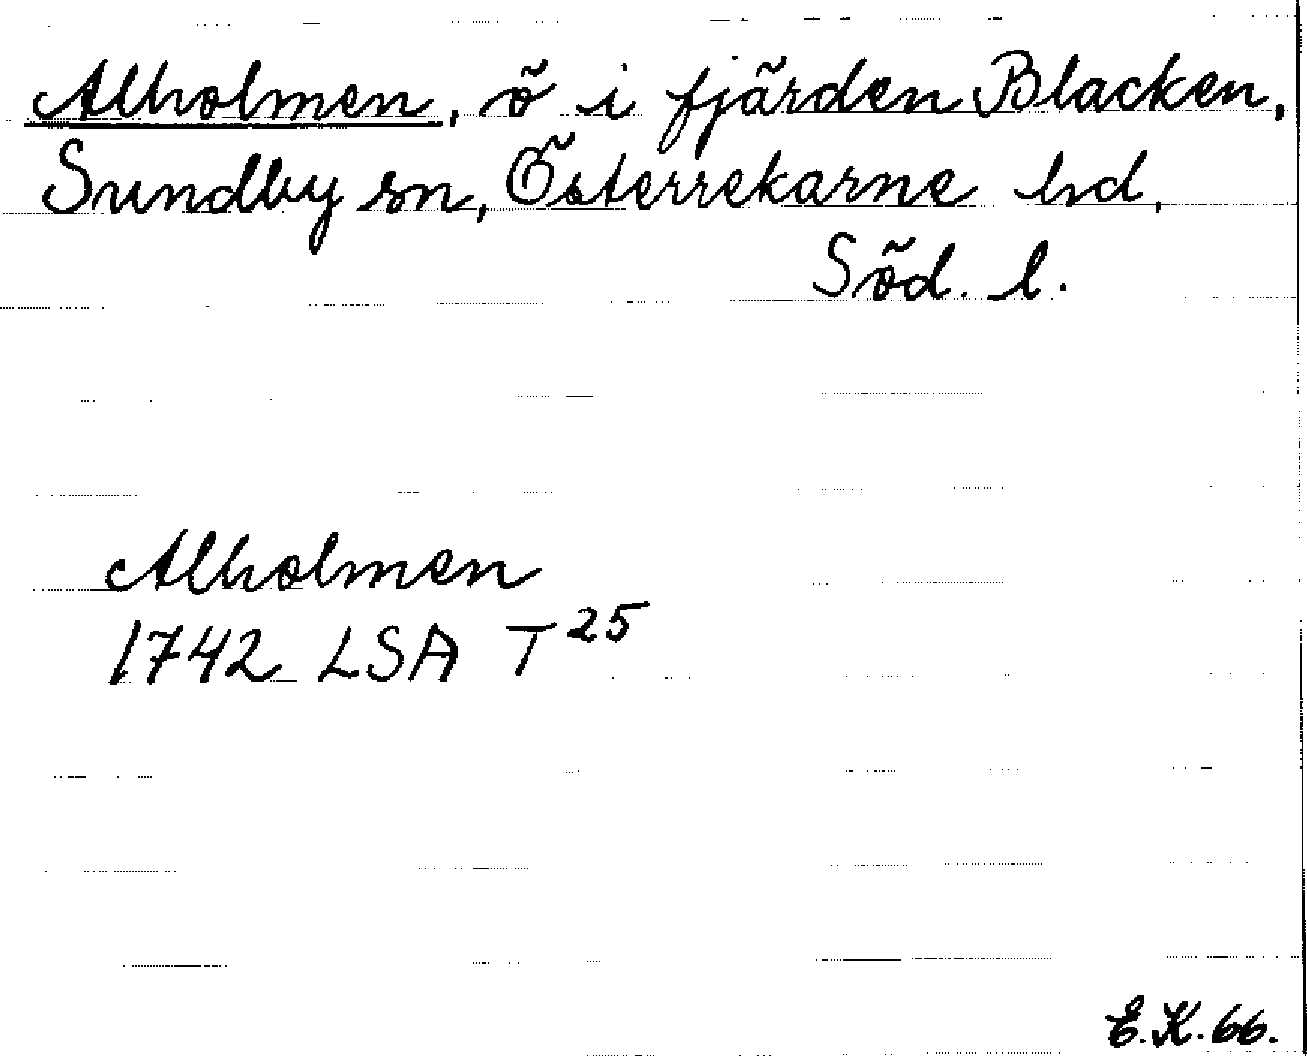 Alholmen, ö i fjärden Blacken,
Sundby sn, Österrekarne hd,
Söd. l.
Alholmen
1742 LSA T 25
E.K. 66.